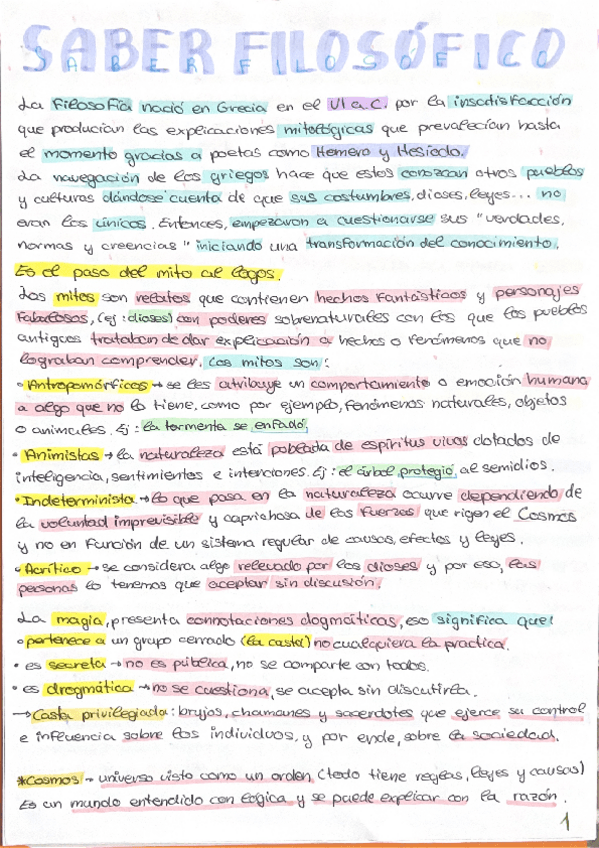 SABER FILOSÓFICO
SABER FILOSÓFICO
La filosofía nació en Grecia en el VI a.C. por la insatisfacción
que producían las explicaciones mitológicas que prevalecían hasta
el momento gracias a poetas como Homero y Hesiodo.
La navegación de los griegos hace que estos conozcan otros pueblos
y culturas dándose cuenta de que sus costumbres, dioses, leyes... no
eran los únicos. Entonces, empezaron a cuestionarse sus "verdades,
normas y creencias" iniciando una transformación del conocimiento.
Es el paso del mito al logos.
Los mitos son relatos que contienen hechos fantásticos y personajes
fabulosos, (ej: dioses) con poderes sobrenaturales con los que los pueblos
antiguos trataban de dar explicación a hechos o fenómenos que no
lograban comprender. Los mitos son:
• Antropomórficos → se les atribuye un comportamiento o emoción humana
a algo que no lo tiene, como por ejemplo, fenómenos naturales, objetos
o animales. Ej: la tormenta se enfadó
• Animistas → la naturaleza está poblada de espíritus vivos dotados de
inteligencia, sentimientos e intenciones. Ej: el árbol protegió al semidios.
• Indeterminista → lo que pasa en la naturaleza ocurre dependiendo de
la voluntad imprevisible y caprichosa de las fuerzas que rigen el Cosmos
y no en función de un sistema regular de causas, efectos y leyes.
• Acrítico → se considera algo revelado por los dioses y por eso, las
personas lo tenemos que aceptar sin discusión.
La magia, presenta connotaciones dogmáticas, eso significa que:
• pertenece a un grupo cerrado (la casta) no cualquiera la practica.
• es secreta → no es pública, no se comparte con todos.
• es drogmática → no se cuestiona, se acepta sin discutirla.
→ Casta privilegiada: brujos, chamanes y sacerdotes que ejerce su control
e influencia sobre los individuos, y por ende, sobre la sociedad.
*Cosmos → universo visto como un orden, (todo tiene reglas, leyes y causas)
Es un mundo entendido con lógica y se puede explicar con la razón.
1